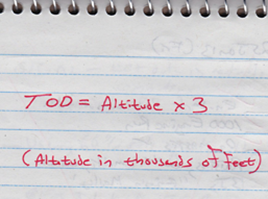 TOD = Altitude x 3
(Altitude in thousands of Feet)